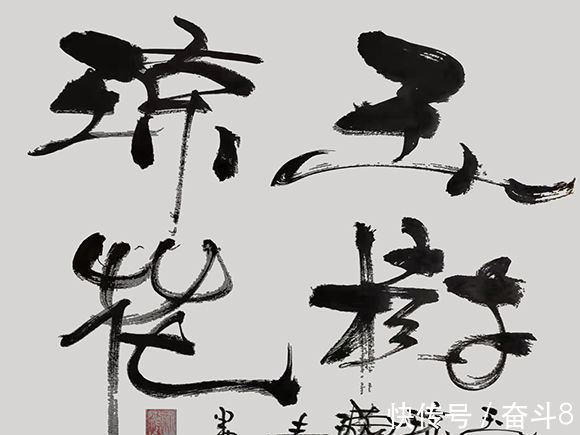 玉树
琼花
快传号 / 奋斗8